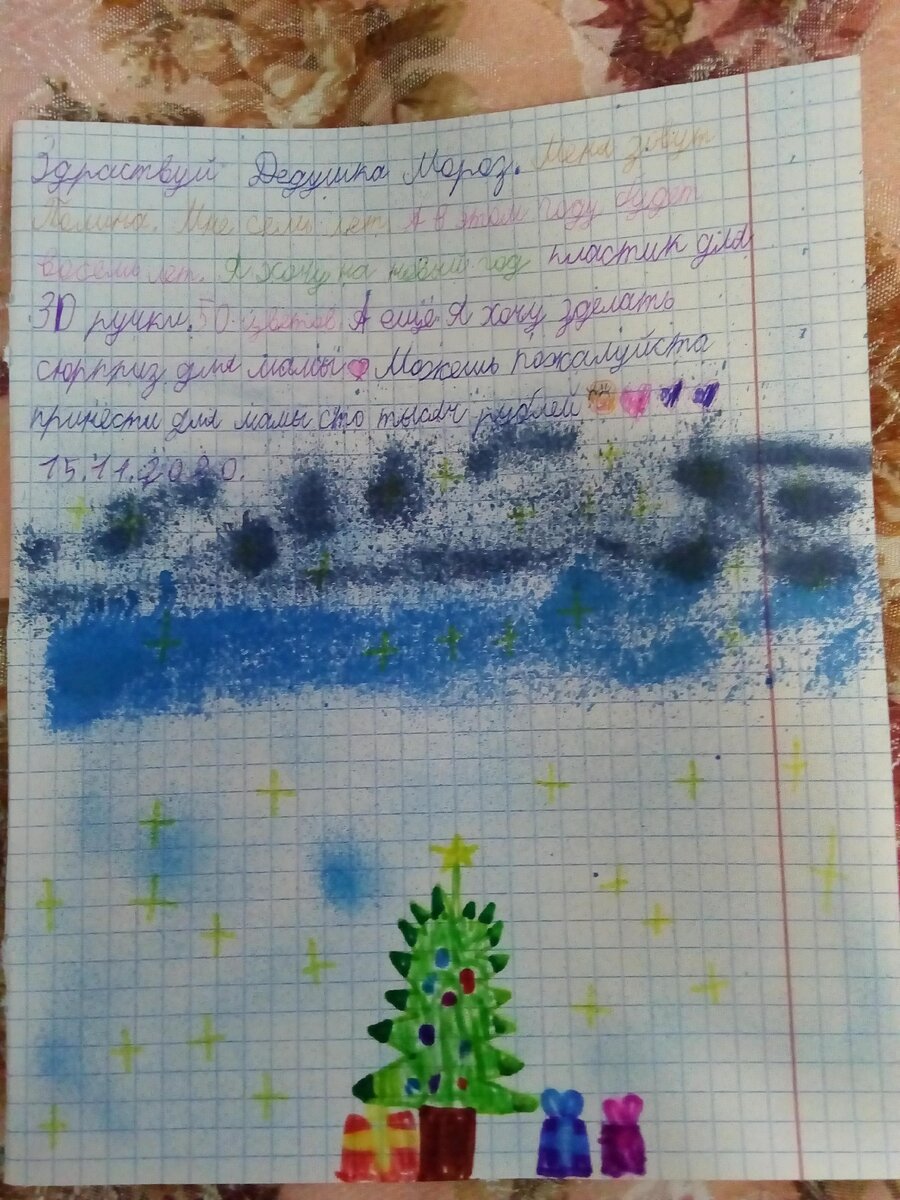 Здраствуй Дедушка Мороз. Меня зовут
Полина. Мне семь лет А в этом году будет
восемь лет. Я хочу на новый год пластик для
3D ручки. 50 цветов А ещё Я хочу зделать
сюрприз для мамы Можешь пожалуйста
принести для мамы сто тысяч рублей
15.11.2020.